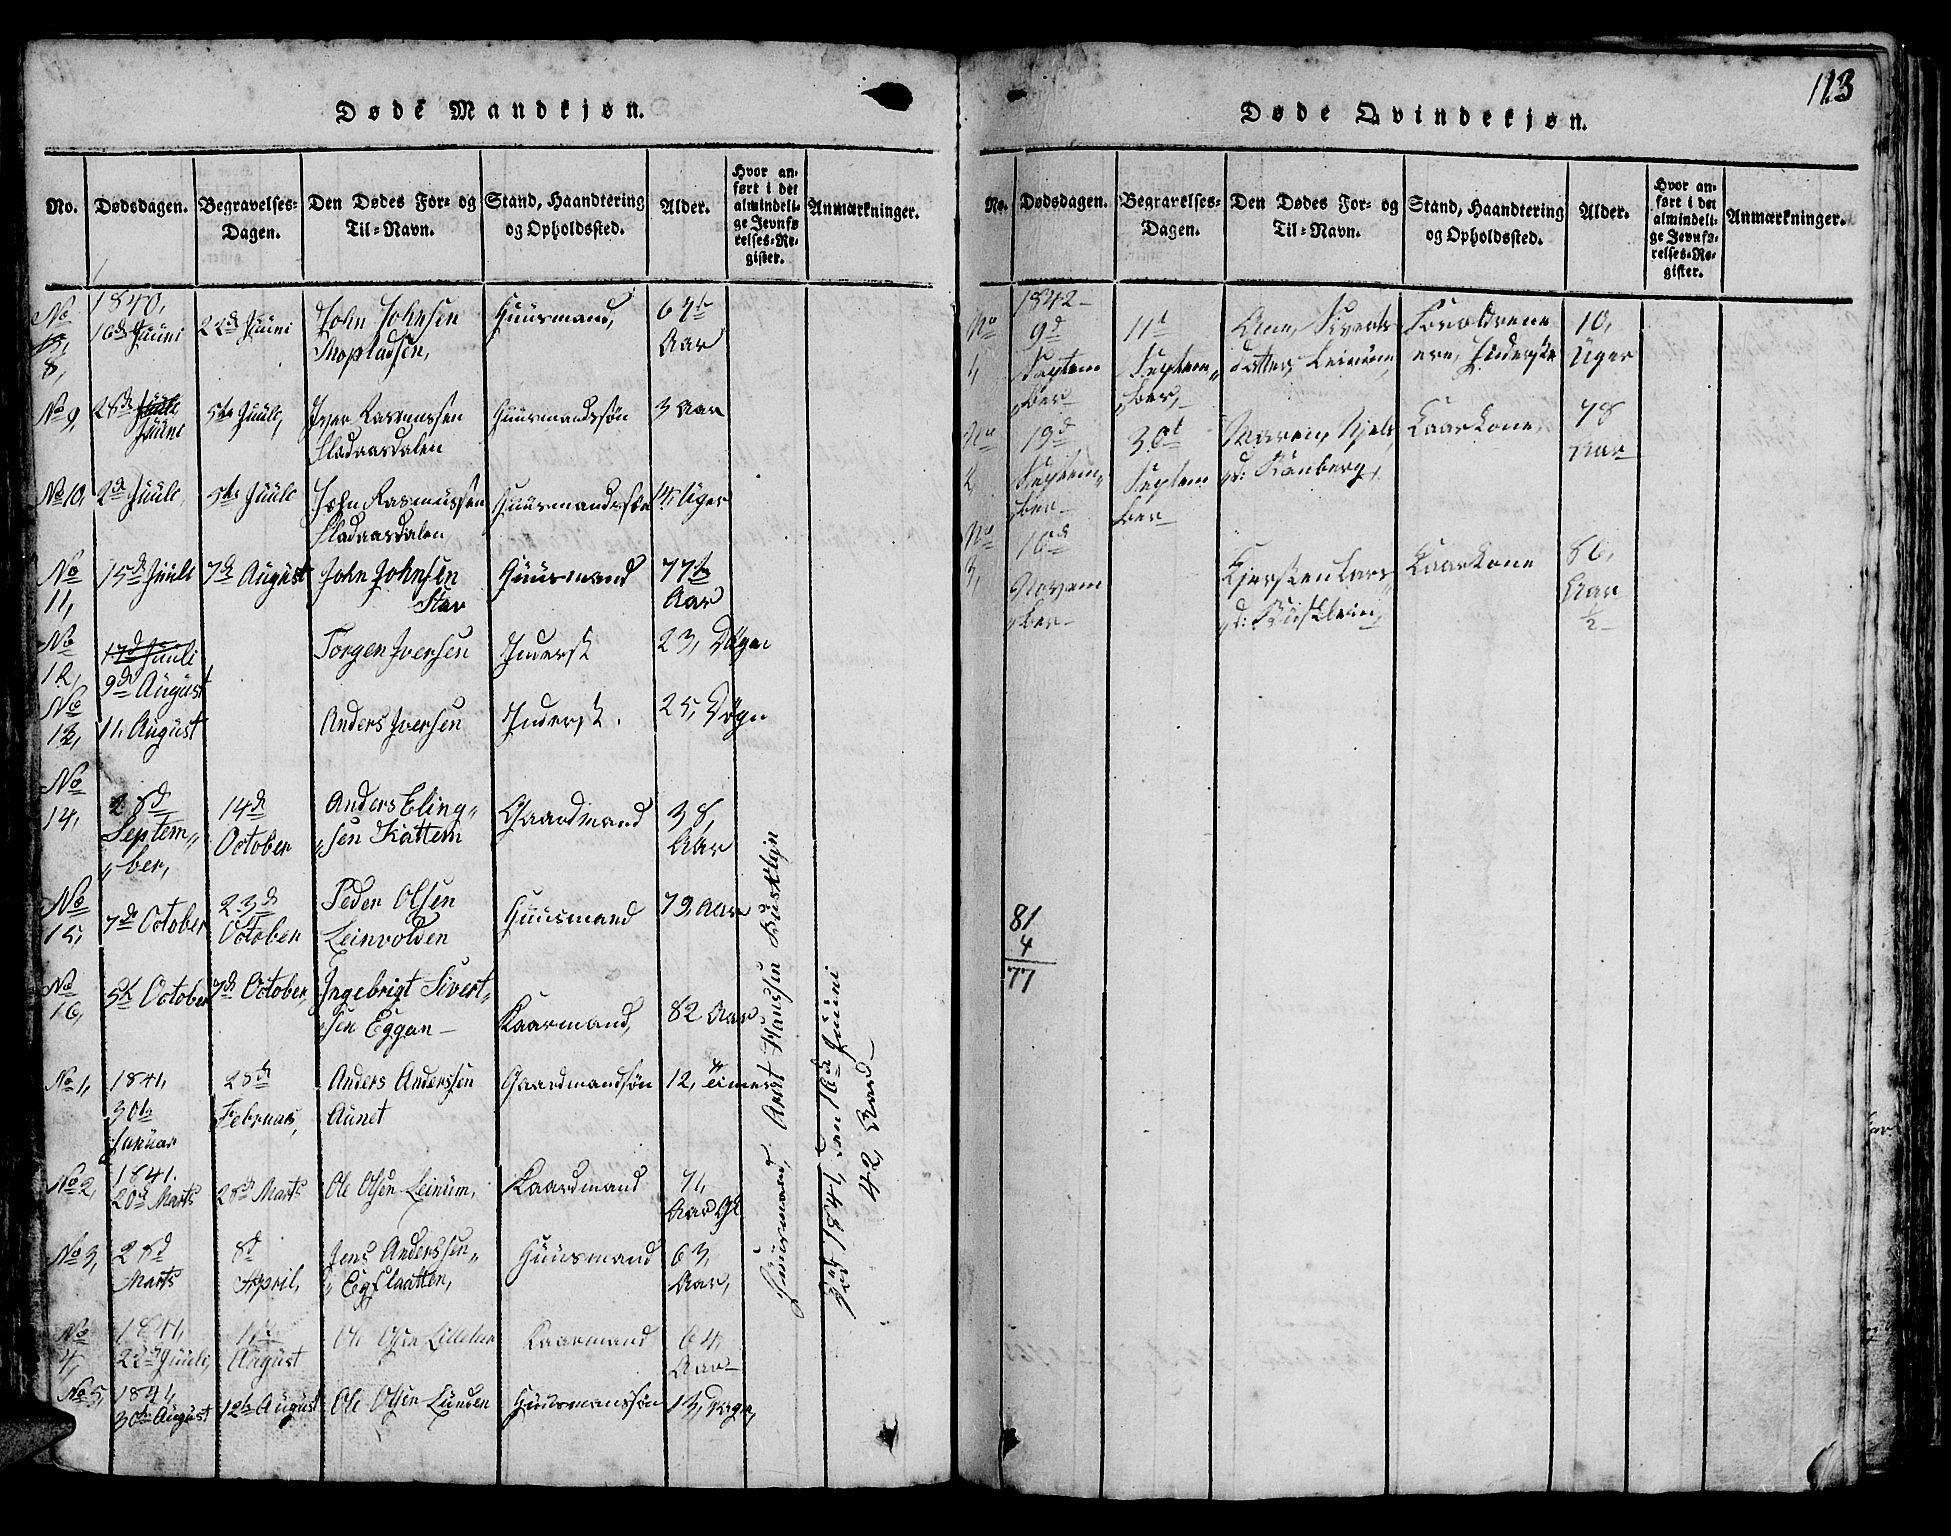 Døde Mandkjøn.
No. Dødsdagen. Begravelses-Dagen. Den Dødes For- og Til-Navn. Stand, Haandtering og Opholdssted. Alder. Hvor anført i det almindelige Jevnførelses-Register. Anmærkninger.
1840,
No 8, 16de Juuni 22de Juuni John Johnsen Huusmand, 67te Aar
No 9, 28de Juuni 5te Juuli, Iver Rasmussen Fladaasdalen Huusmandssøn 3 Aar
No 10, 2de Juuli 5te Juuli John Rasmussen Fladaasdalen Huusmandssøn 15 Uger
No 11, 15de Juuli 7de August John Johnsen Huusmand 77te Aar
No 12, 17d Juuli 9de August Torgen Iversen Indersk 23, Døgn
No 13, 11. August Anders Iversen Indersk. 25, Døgn
No 14, 28d Septem„ „ber, 14de October Anders Eling„ „sen Kattem Gaardmand 38, Aar
No 15, 7de October 23de October Peder Olsen Leinvolden Huusmand 79, Aar
No 16, 5te October 7de October, Ingebrigt Sivert„ „sen Eggan Kaarmand, 82 Aar
No 1, 1841, 30te Januar 28de Februar, Anders Anderssen Aunet Gaardmandsøn 12, Timer
No 2, 1841, 20de Marts 28de Marts Ole Olsen Leinum, Kaardmand 71, Aar Gl
No 3, 28d Marts 8d April, Jens Anderssen„ „Egflaatten, Huusmand 63, Aar,
No 4, 1841, 22de Juuli, August Ole Olsen Kaarmand 64, Aar
No 5, 1841 30te August 12te August Ole Olsen Lunden Huusmanssøn 13, Døgn,
Huusmand, Arnt Hansen Busklein
Død 1841, den 16de Juuni
42, Aar
113
Døde Qvindekjøn.
No. Dødsdagen. Begravelses-Dagen. Den Dødes For- og Til-Navn. Stand, Haandtering og Opholdssted. Alder. Hvor anført i det almindelige Jevnførelses-Register. Anmærkninger.
1842
No 1, 9d Septem „ber 11t Septem„ „ber, Ane, Siverts datter, Leinum, Forældrene ere, Inderske 10, Uger
No 2, 19d Septem„ „ber 30t Septem „ber Maren, Niels „d: Ranberg, Kaarkone, 78 Aar
No 3, 16d Novem „ber Kjersten Lars „d: Busklein, Kaarkone 86, Aar ½
81
4
77